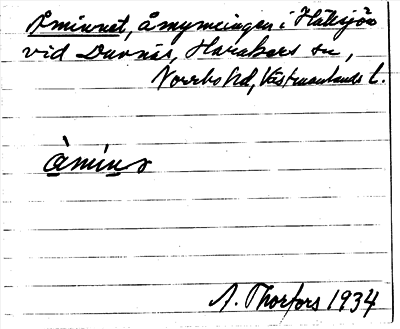 Åminnet, åmynningen i Hällsjön
vid Duvnäs, Harakers sn,
Norrbo hd, Västmanlands l.
åminə
A. Thorfors 1934